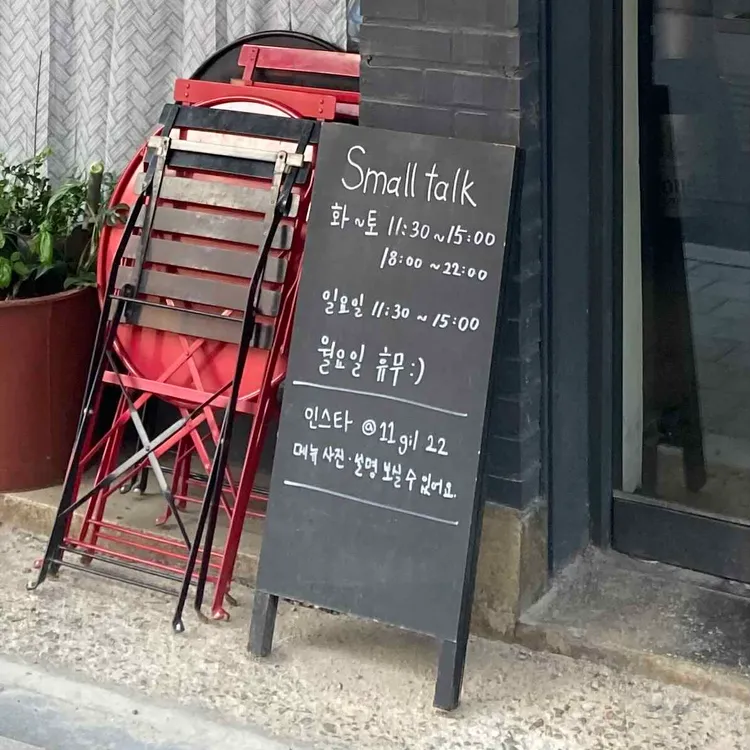 Small talk
화~토 11:30~15:00
18:00 ~22:00
일요일 11:30 ~ 15:00
월요일 휴무 :)
인스타 @11gil 22
메뉴 사진·설명 보실 수 있어요.